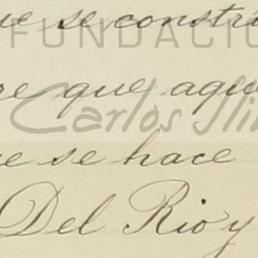 ue se constru
FUNDACIÓ
re que aqu
Carlos Slim
e se hace
Del Rio y